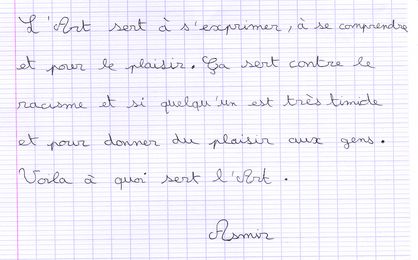 L'Art sert à s'exprimer, à se comprendre
et pour le plaisir. Ça sert contre le
racisme et si quelqu'un est très timide
et pour donner du plaisir aux gens.
Voila à quoi sert l'Art.
Asmir